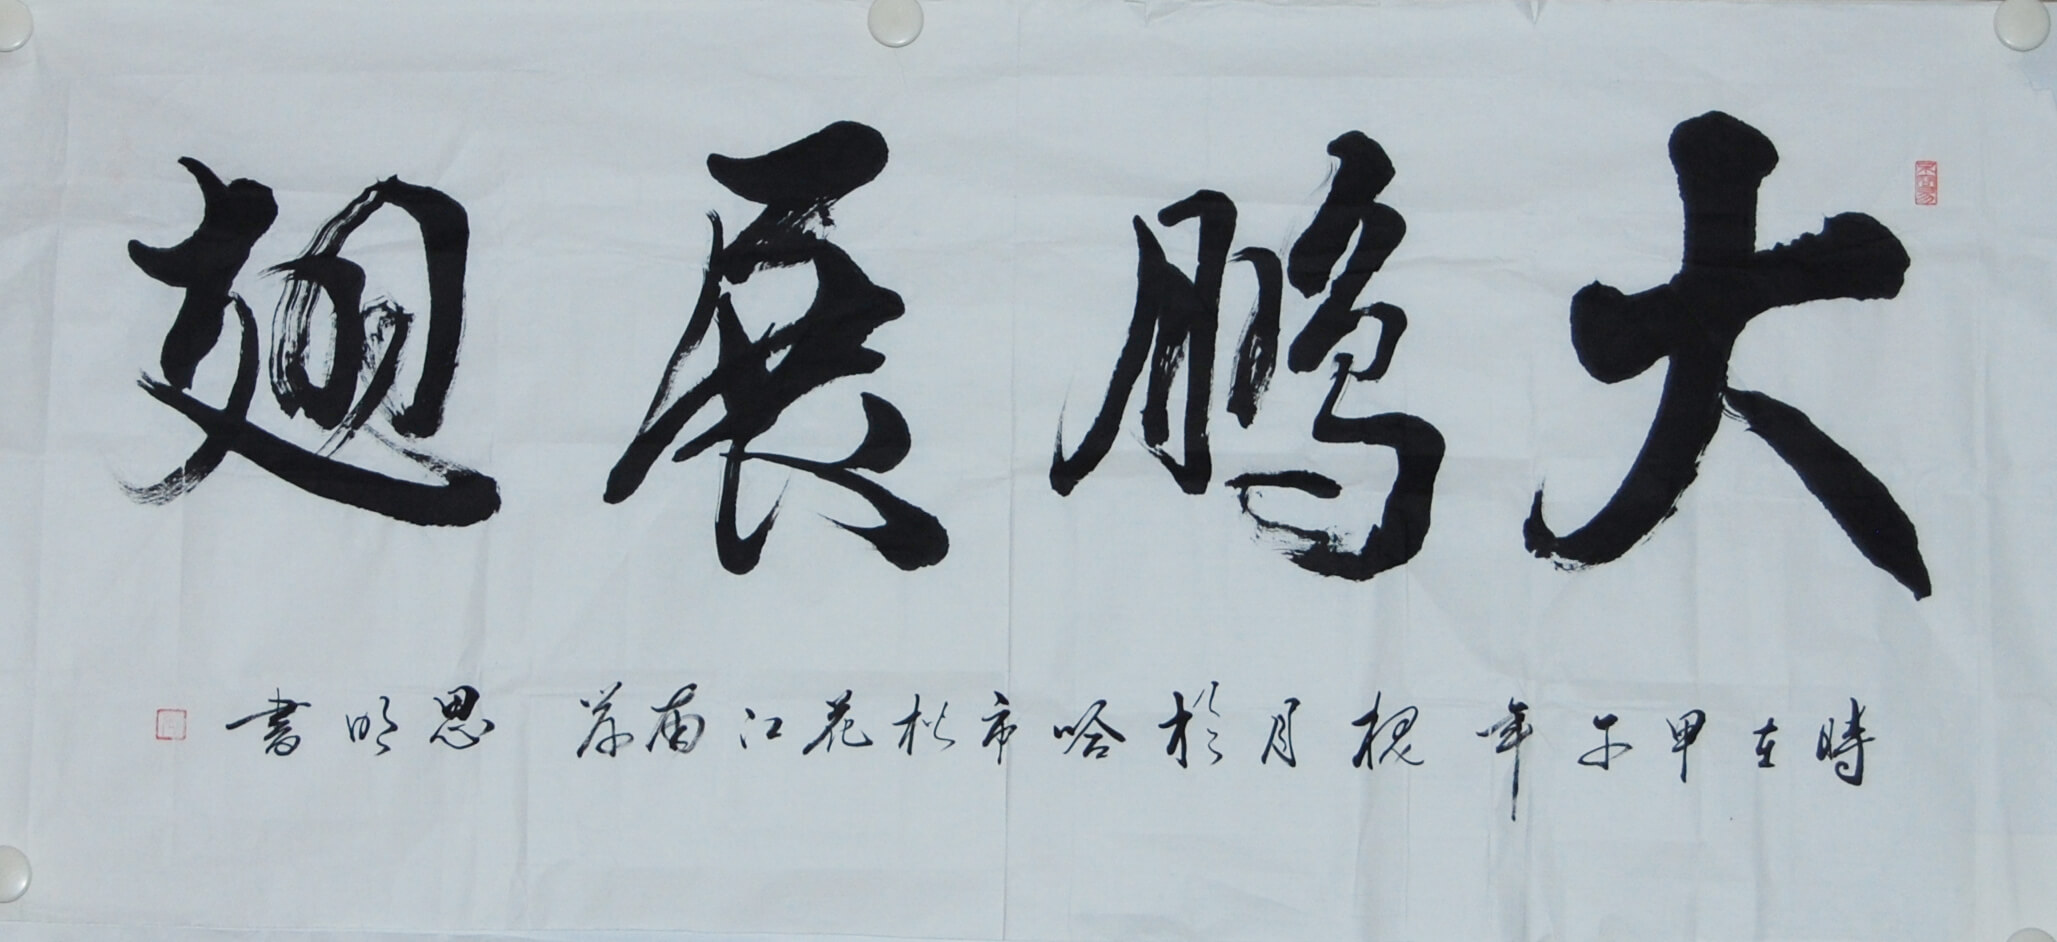 大鵬展翅
時在甲午年槐月於哈市松花江南岸 思明書